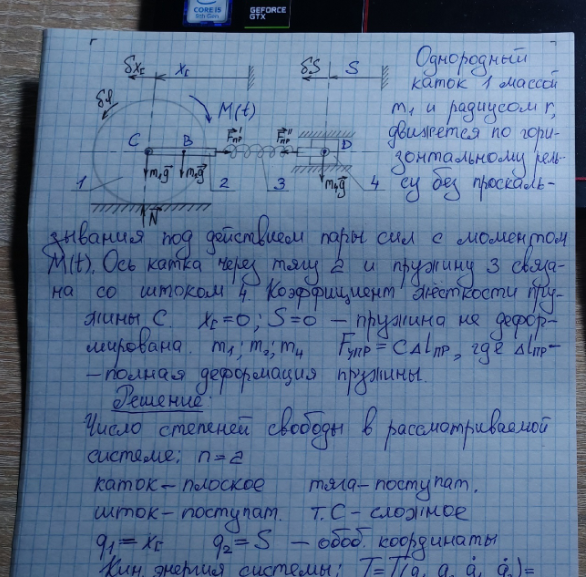 CORE i5
8th Gen
GEFORCE
GTX
δx_C x_C δS S
δφ M(t)
C B F̄'пр F̄''пр D
m₁ḡ m₂ḡ m₄ḡ
1 2 3 4
N̄
Однородный
каток 1 массой
m₁ и радиусом r,
движется по гори-
зонтальному рель-
су без проскаль-
зывания под действием пары сил с моментом
M(t). Ось катка через тягу 2 и пружину 3 связа-
на со штоком 4 Коэффициент жёсткости пру-
жины C. x_C=0; S=0 – пружина не дефор-
мирована. m₁; m₂; m₄ Fупр=CΔlпр, где Δlпр-
-полная деформация пружины.
Решение:
Число степеней свободы в рассматриваемой
системе: n=2
каток – плоское тяга – поступат.
шток – поступат. т.C – сложное
q₁ = x_C q₂ = S – обоб. координаты
Кин. энергия системы: T=T(q₁ q₂ q̇₁ q̇₂)=